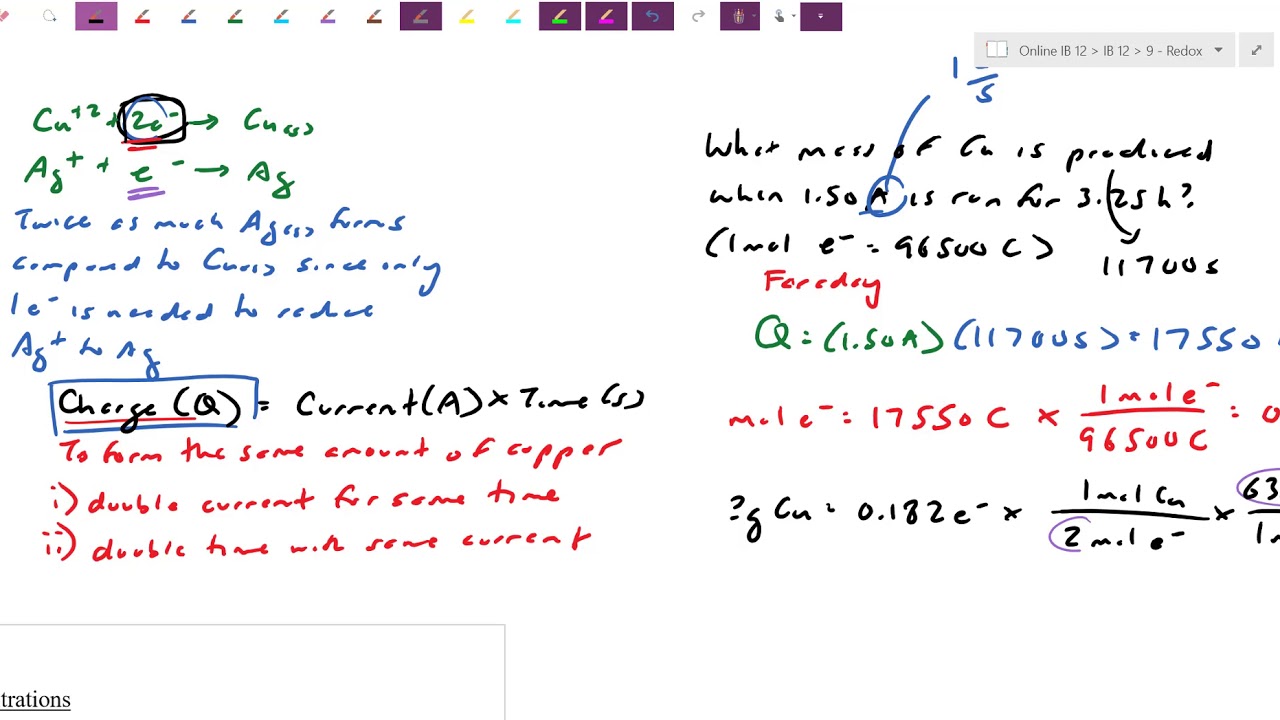 Online IB 12 > IB 12 > 9 - Redox
Cu+2 + 2e- → Cu(s)
Ag+ + e- → Ag
Twice as much Ag(s) forms
compared to Cu(s) since only
1e- is needed to reduce
Ag+ to Ag
Charge (Q) = Current (A) × Time (s)
To form the same amount of copper
i) double current for same time
ii) double time with same current
trations
s
What mass of Cu is produced
when 1.50 A is run for 3.25 h?
(1 mol e- = 96500 C) 11700 s
Faraday
Q = (1.50A) (11700s) = 17550
mol e- = 17550 C × 1 mol e- / 96500 C = 0
?g Cu = 0.182 e- × 1 mol Cu / 2 mol e- × 63 / 1